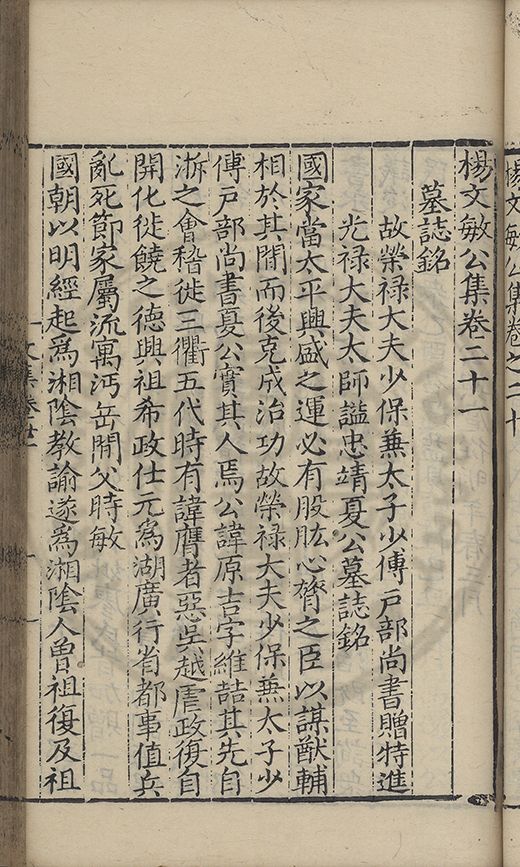 楊文敏公集卷之二十
楊文敏公集卷二十一
墓誌銘
故榮禄大夫少保兼太子少傅戸部尚書贈特進
光禄大夫太師謚忠靖夏公墓誌銘
國家當太平興盛之運必有股肱心膂之臣以謀猷輔
相於其間而後克成治功故榮禄大夫少保兼太子少
傅戸部尚書夏公實其人焉公諱原吉字維喆其先自
浙之會稽徙三衢五代時有諱膺者惡吳越虐政復自
開化徙饒之德興祖希政仕元為湖廣行省都事值兵
亂死節家屬流寓沔岳間父時敏
國朝以明經起為湘隂教諭遂為湘隂人曾祖復及祖
文集卷廿一